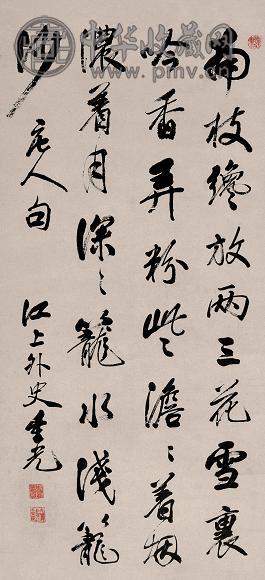 南枝纔放两三花雪裏
吟香弄粉些澹〻着烟
濃着月深〻籠水淺籠
沙
宋人句
江上外史重光
中华收藏网